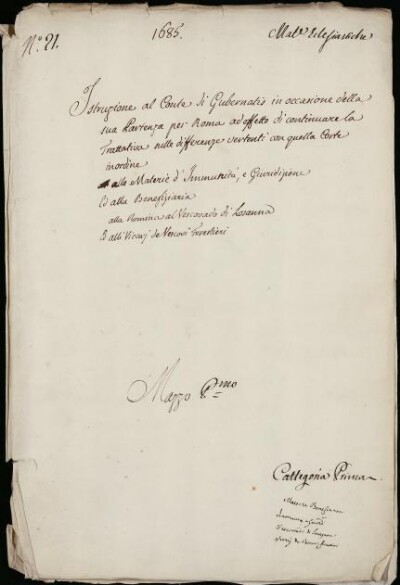 N.° 21.
1685.
Mat.e Eclesiastiche
Istruzione al Conte di Gubernatis in occasione della
sua Partenza per Roma ad effetto di continuare la
Trattativa sulle differenze vertenti con quella Corte
in ordine
alle Materie d'Immunità, e Giurisdizione
Ed alla Beneficiaria
alla Nomina al Vescovado di Losanna
E alli Vicarj de Vescovi Forestieri
Mazzo P.mo
Cattegoria Prima
Materia Beneficiaria
Vescovado di Losanna